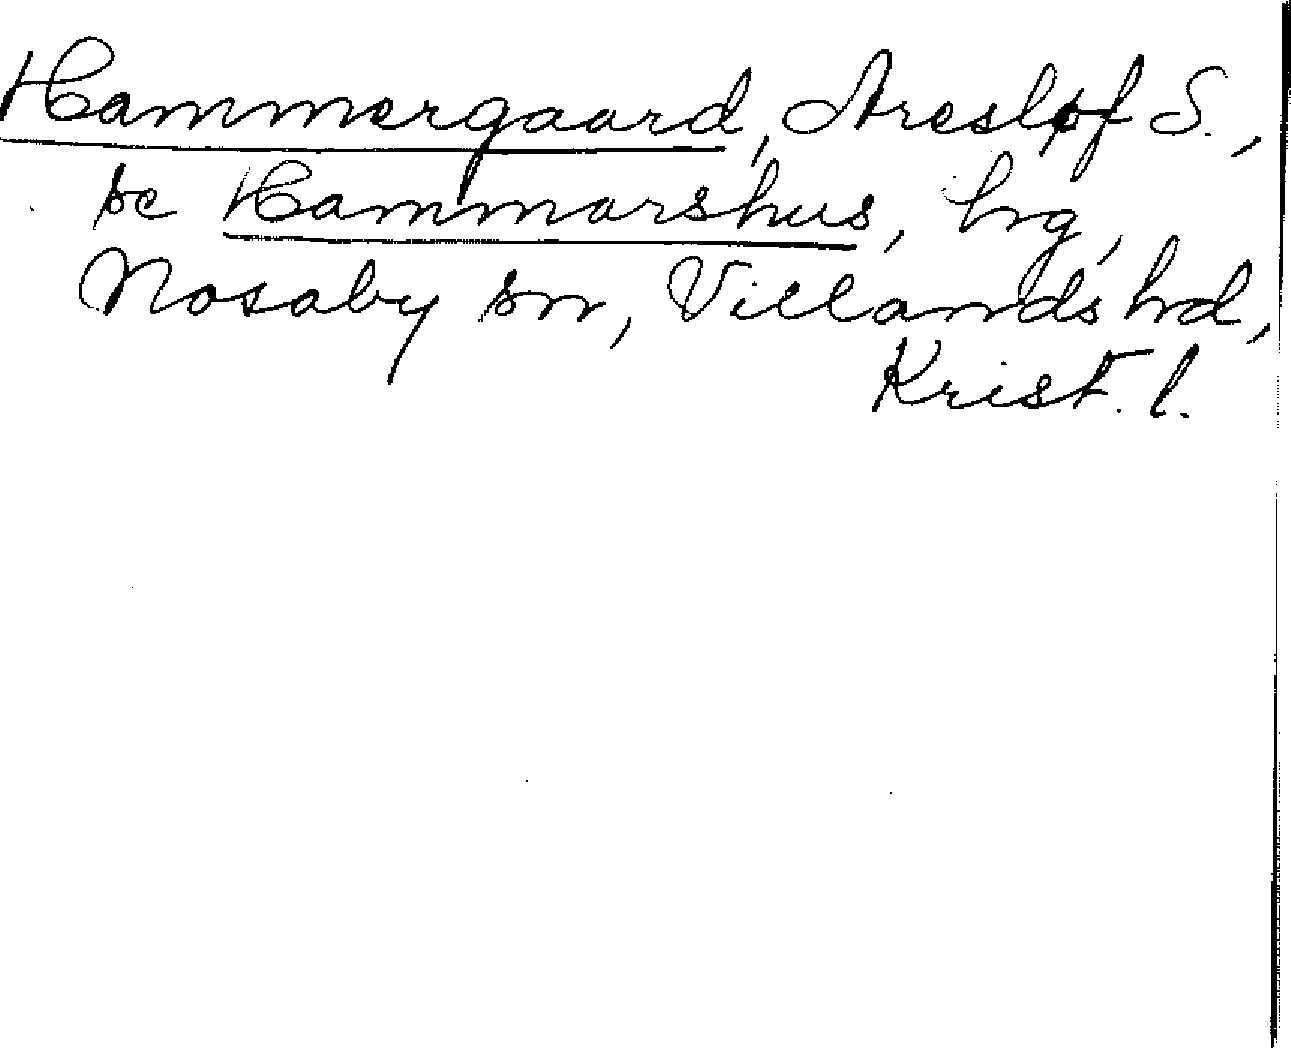 Hammergaard, Aresløf S.,
se Hammarshus, hrg,
Nosaby sn, Villands hd,
Krist. l.